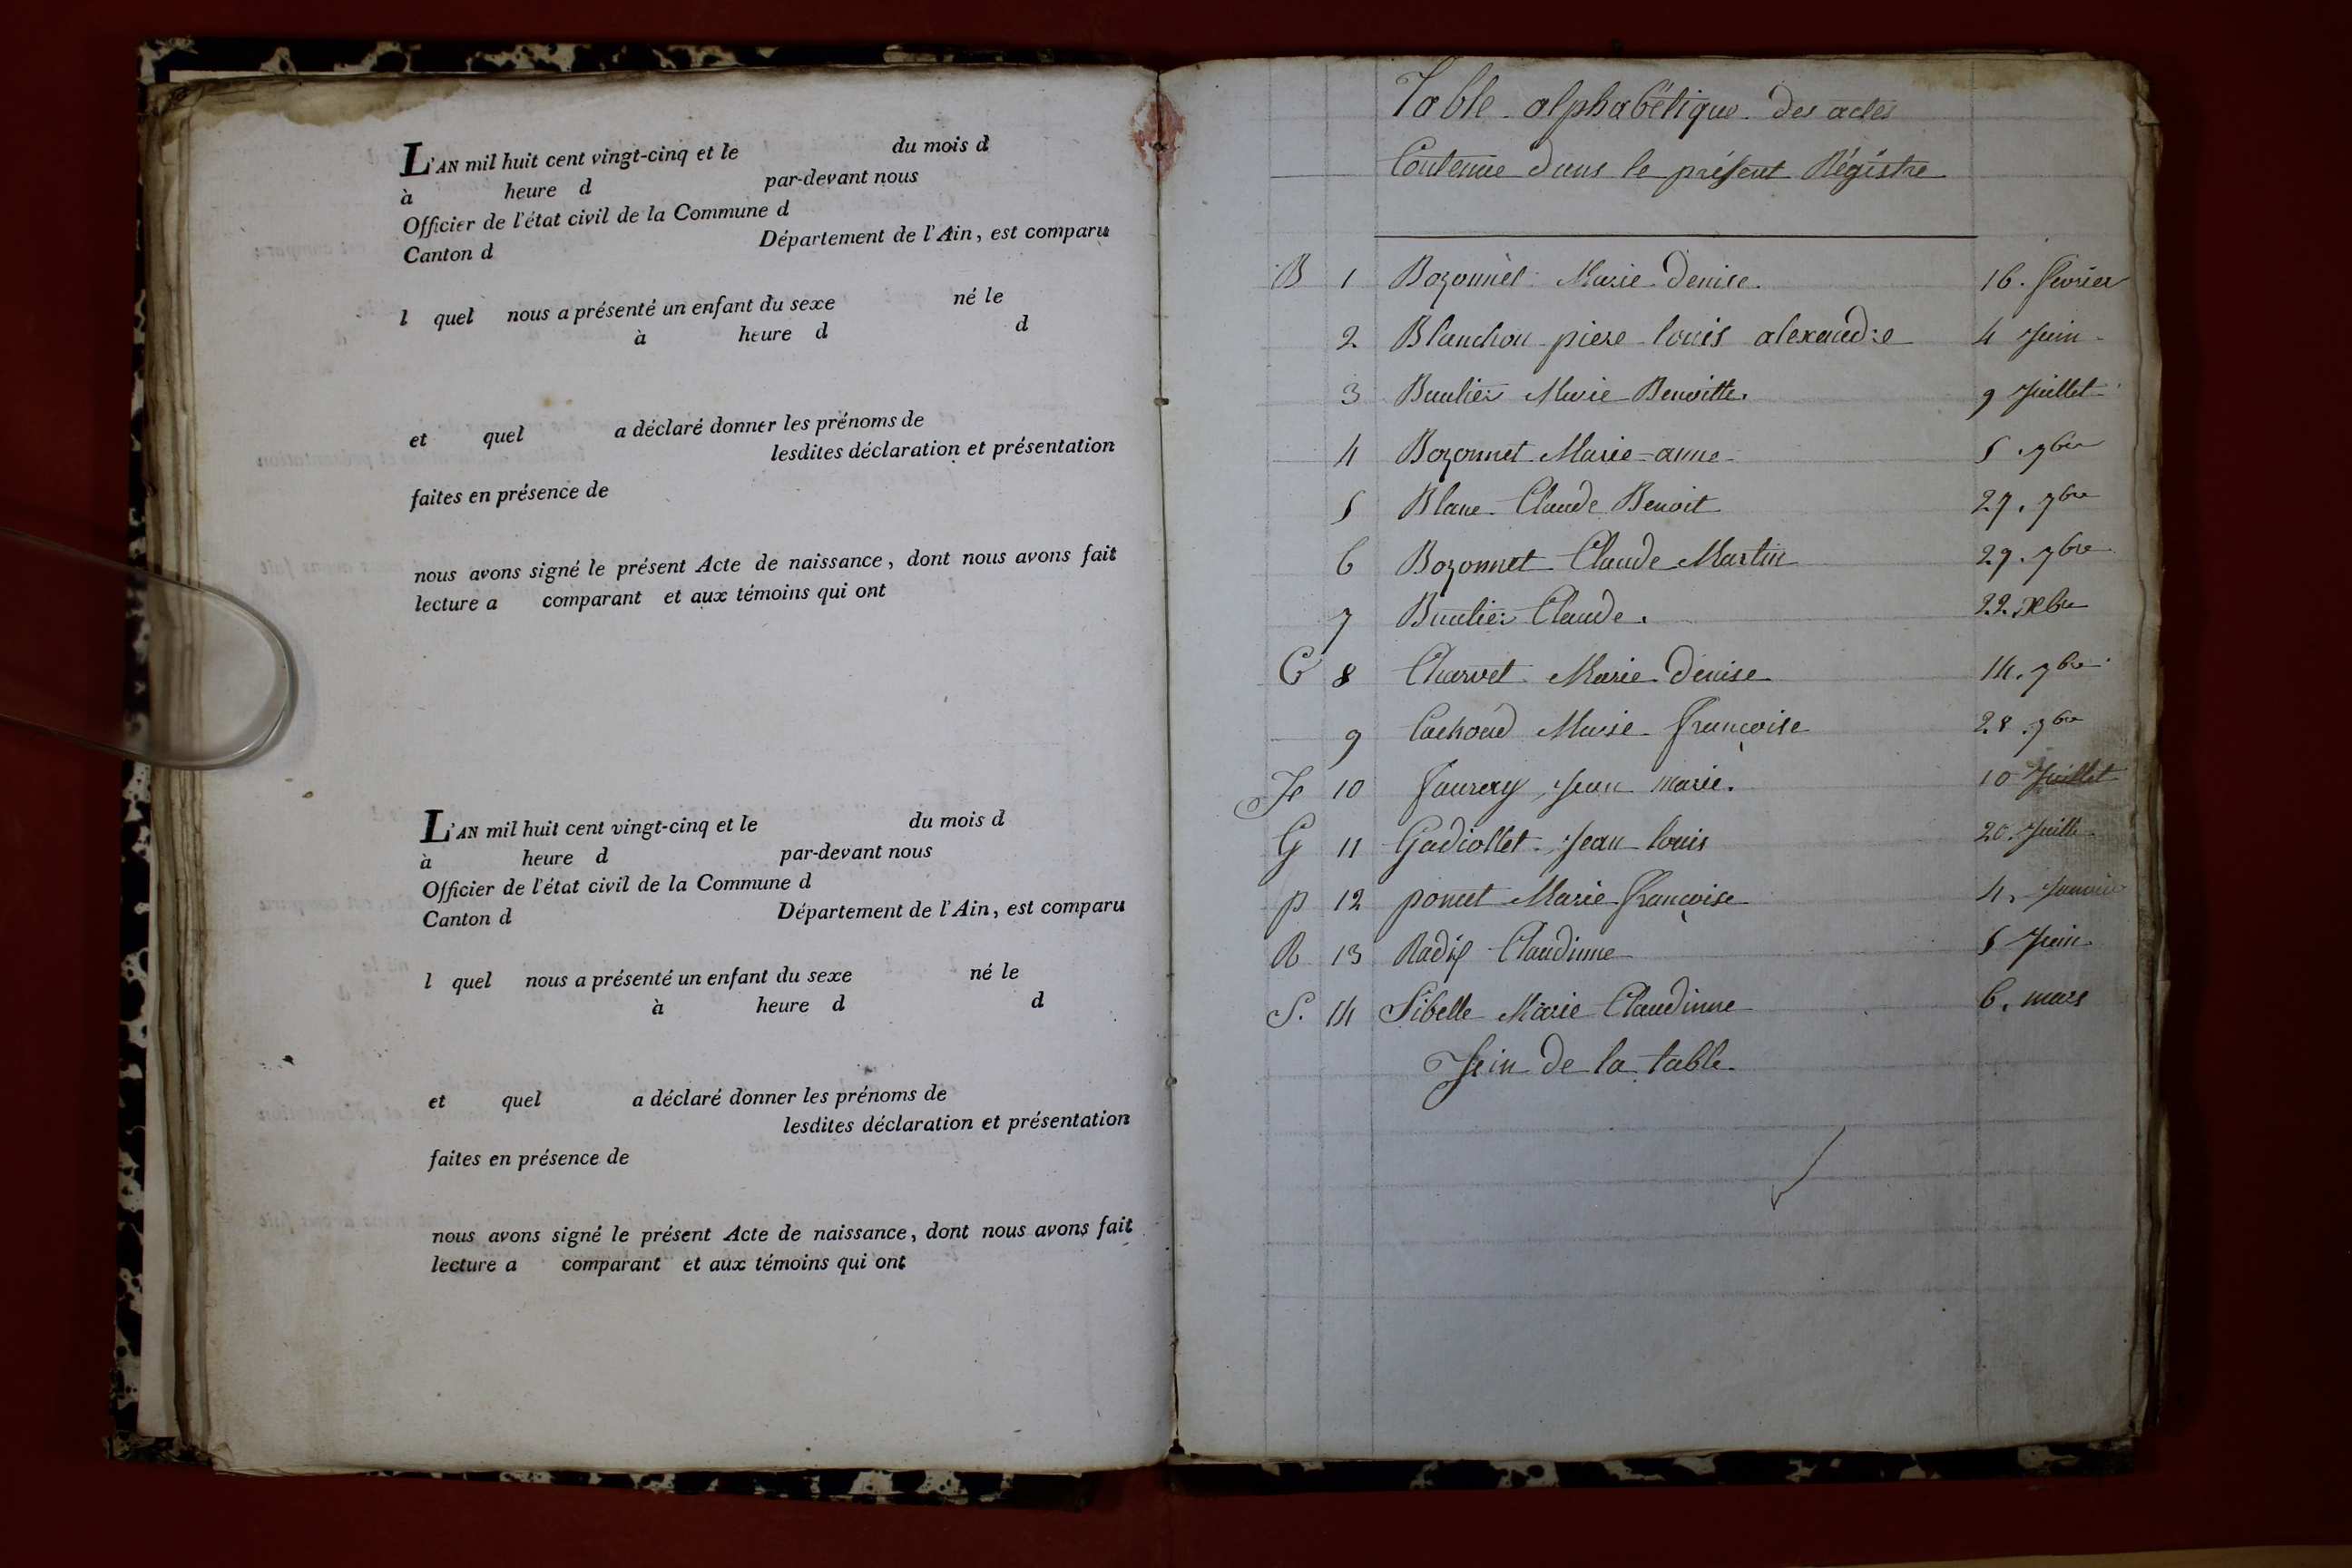 L'AN mil huit cent vingt-cinq et le du mois d
à heure d par-devant nous
Officier de l'état civil de la Commune d
Canton d Département de l'Ain, est comparu
l quel nous a présenté un enfant du sexe né le
à heure d d
et quel a déclaré donner les prénoms de
lesdites déclaration et présentation
faites en présence de
nous avons signé le présent Acte de naissance, dont nous avons fait
lecture a comparant et aux témoins qui ont
L'AN mil huit cent vingt-cinq et le du mois d
à heure d par-devant nous
Officier de l'état civil de la Commune d
Canton d Département de l'Ain, est comparu
l quel nous a présenté un enfant du sexe né le
à heure d d
et quel a déclaré donner les prénoms de
lesdites déclaration et présentation
faites en présence de
nous avons signé le présent Acte de naissance, dont nous avons fait
lecture a comparant et aux témoins qui ont
Table alphabétique des actes
Contenue dans le présent Régistre
B 1 Bozonnet Marie Denise. 16. fevrier
2 Blanchon piere louis alexandre 4 Juin
3 Marie Benoitte. 9 Juillet
4 Bozonnet Marie-anne 5 9bre
5 Blanc Claude Benoit 27. 7bre
6 Bozonnet Claude Martin 29. 7bre
7 Claude. 22. Xbre
C 8 Charvet Marie Denise 14. 9bre
9 Cachoud Marie françoise 28. 9bre
F 10 Jean marie. 10 Juillet
G 11 Gadiollet Jean louis 20. Juillet
p 12 poncet Marie françoise 4. Janvier
R 13 Radix Claudinne 5 Juin
S. 14 Sibelle Marie Claudinne 6. mars
fin de la table